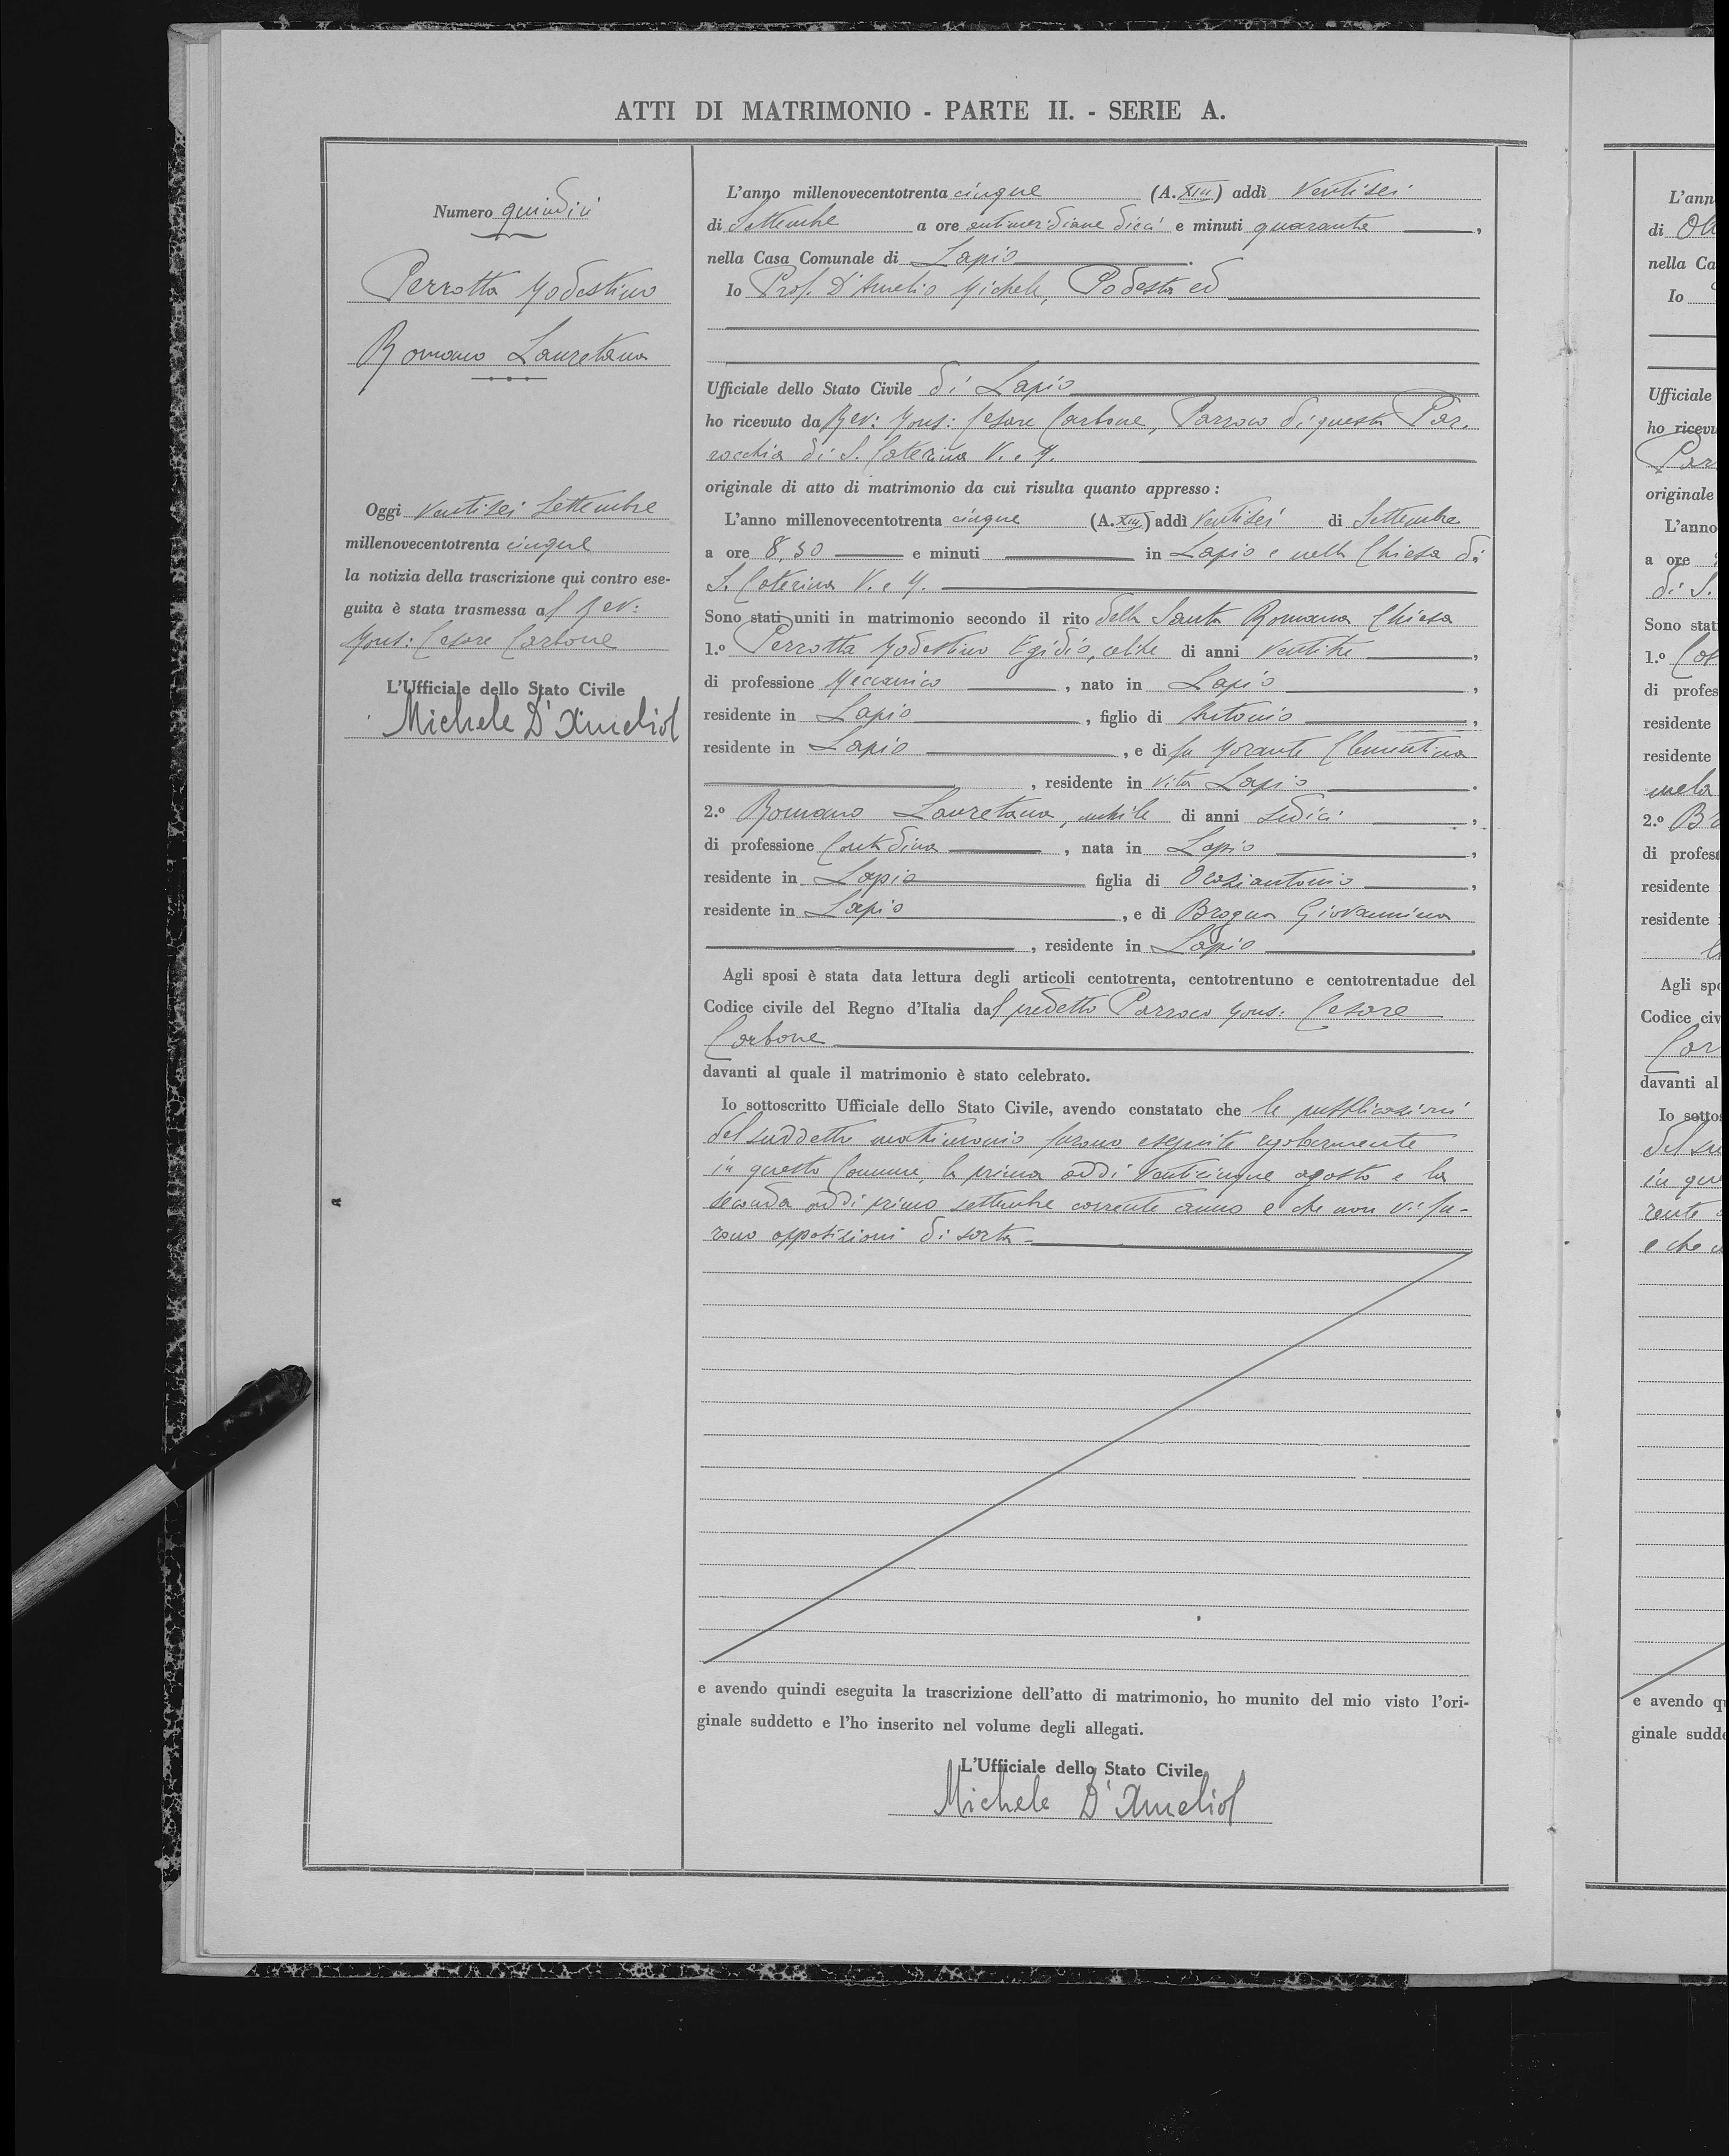 ATTI DI MATRIMONIO - PARTE II. - SERIE A.
Numero quindici
Perrotta Modestino
Romano Lauretana
Oggi ventisei Settembre
millenovecentotrenta cinque
la notizia della trascrizione qui contro ese-
guita è stata trasmessa al Rev:
Mons: Cesare Carbone
L'Ufficiale dello Stato Civile
Michele D'Amelio
L'anno millenovecentotrenta cinque (A. XIII) addì Ventisei
di Settembre a ore antimeridiane dieci e minuti quaranta,
nella Casa Comunale di Lapio.
Io Prof. D'Amelio Michele, Podestà ed
Ufficiale dello Stato Civile di Lapio
ho ricevuto da Rev: Mons: Cesare Carbone, Parroco di questa Par.
rocchia di S. Caterina V. e M.
originale di atto di matrimonio da cui risulta quanto appresso:
L'anno millenovecentotrenta cinque (A. XIII) addì Ventisei di Settembre
a ore 8,30 e minuti in Lapio e nella Chiesa di
S. Caterina V. e M.
Sono stati uniti in matrimonio secondo il rito della Santa Romana Chiesa
1.º Perrotta Modestino Egidio, celibe di anni ventitre,
di professione Meccanico, nato in Lapio,
residente in Lapio, figlio di Antonio,
residente in Lapio, e di fu Morante Clementina
, residente in vita Lapio.
2.º Romano Lauretana, nubile di anni sedici,
di professione Contadina, nata in Lapio,
residente in Lapio figlia di Oraziantonio,
residente in Lapio, e di Brogna Giovannina
, residente in Lapio.
Agli sposi è stata data lettura degli articoli centotrenta, centotrentuno e centotrentadue del
Codice civile del Regno d'Italia dal predetto Parroco Mons: Cesare
Carbone
davanti al quale il matrimonio è stato celebrato.
Io sottoscritto Ufficiale dello Stato Civile, avendo constatato che le pubblicazioni
del suddetto matrimonio furono eseguite regolarmente
in questo Comune, la prima addì venticinque agosto e la
seconda addì primo settembre corrente anno e che non vi fu-
rono opposizioni di sorta=
e avendo quindi eseguita la trascrizione dell'atto di matrimonio, ho munito del mio visto l'ori-
ginale suddetto e l'ho inserito nel volume degli allegati.
L'Ufficiale dello Stato Civile
Michele D'Amelio
L'ann
di
nella Ca
Io
Ufficiale
ho ricevu
Par
originale
L'anno
a ore
di S.
Sono stati
1.º
di profes
residente
residente
mela
2.º Br
di profess
residente
residente
Agli spo
Codice civ
Car
davanti al
Io sottos
del su
in que
rente
e che
e avendo qu
ginale sudde